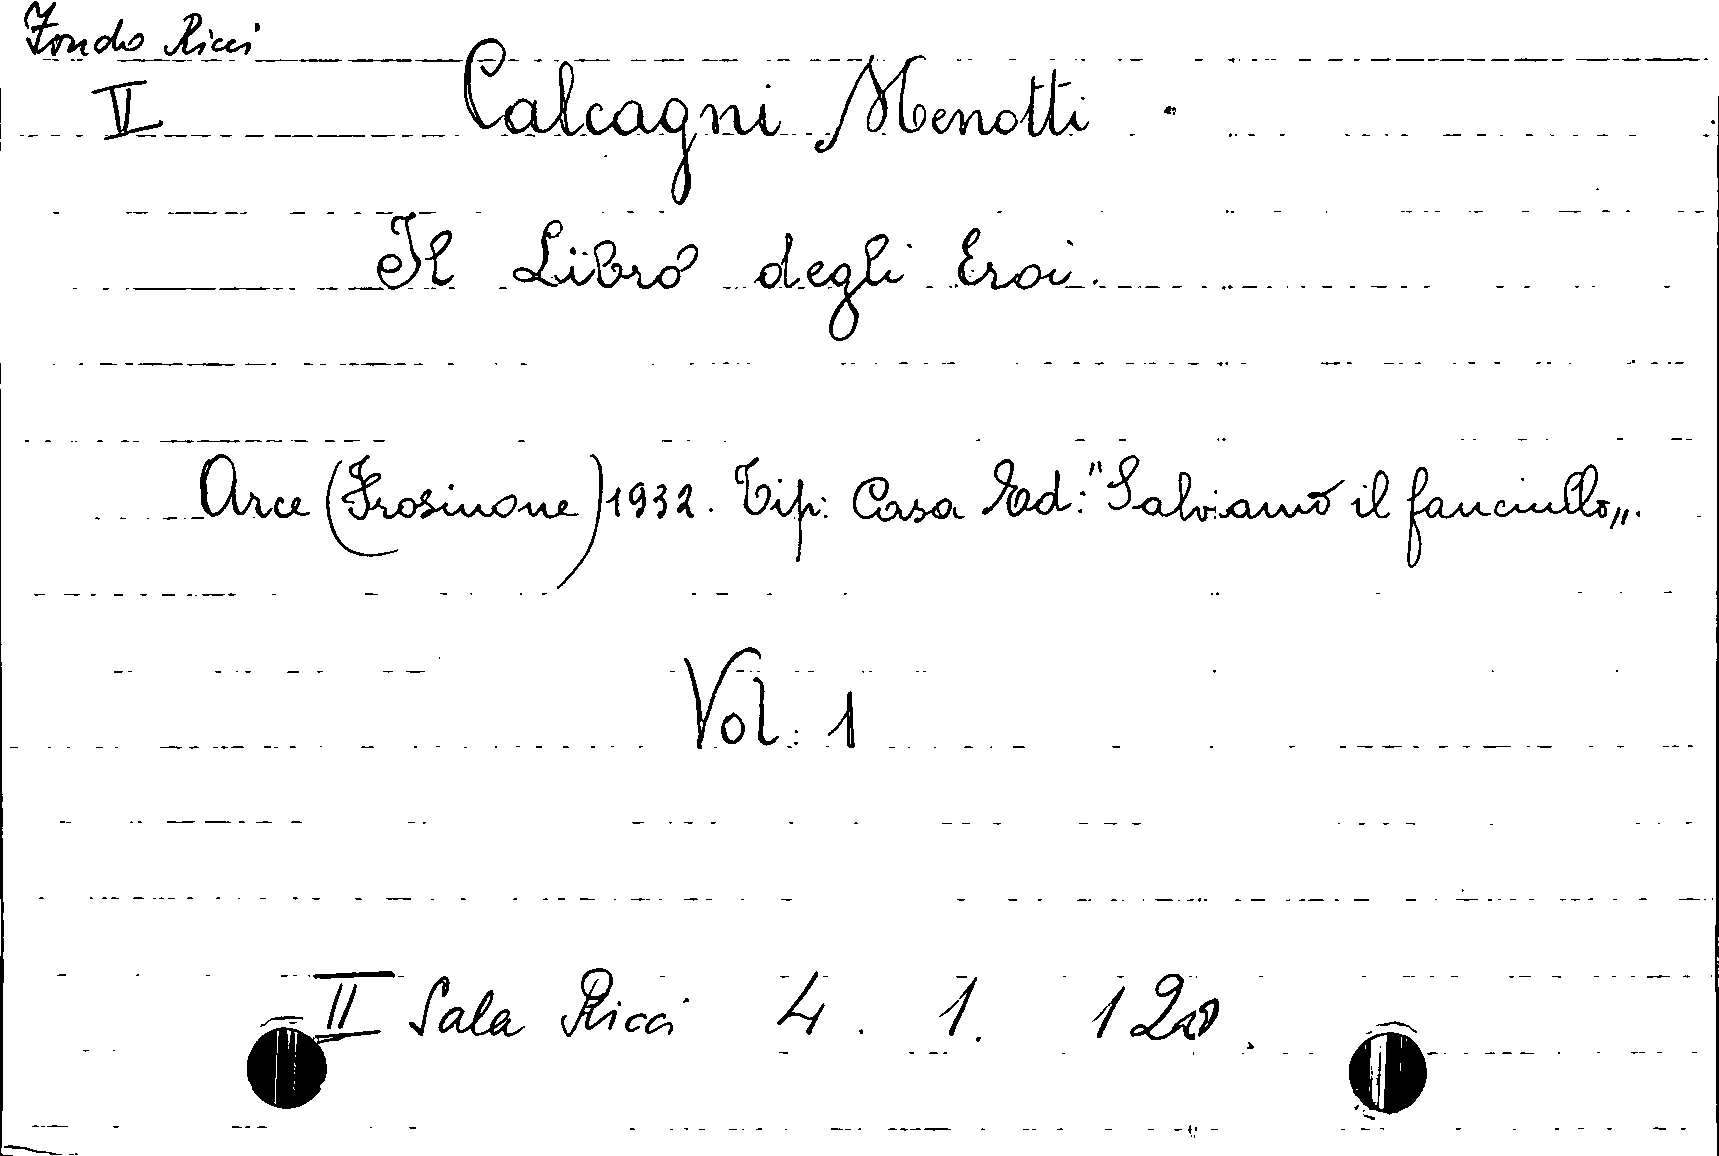 Fondo Ricci
V Calcagni Menotti.
Il Libro degli Eroi.
Arce (Frosinone) 1932. Tip: Casa Ed: "Salviamo il fanciullo„.
Vol. 1
II Sala Ricci 4. 1. 120.